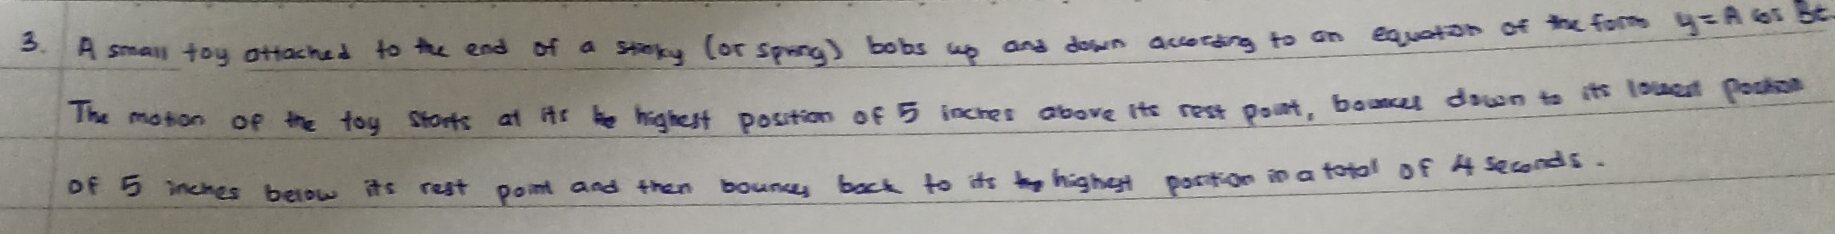 3. A small toy attached to the end of a slinky (or spring) bobs up and down according to an equation of the form y = A cos Bt.
The motion of the toy starts at its highest position of 5 inches above its rest point, bounces down to its lowest position
of 5 inches below its rest point and then bounces back to its highest position in a total of 4 seconds.